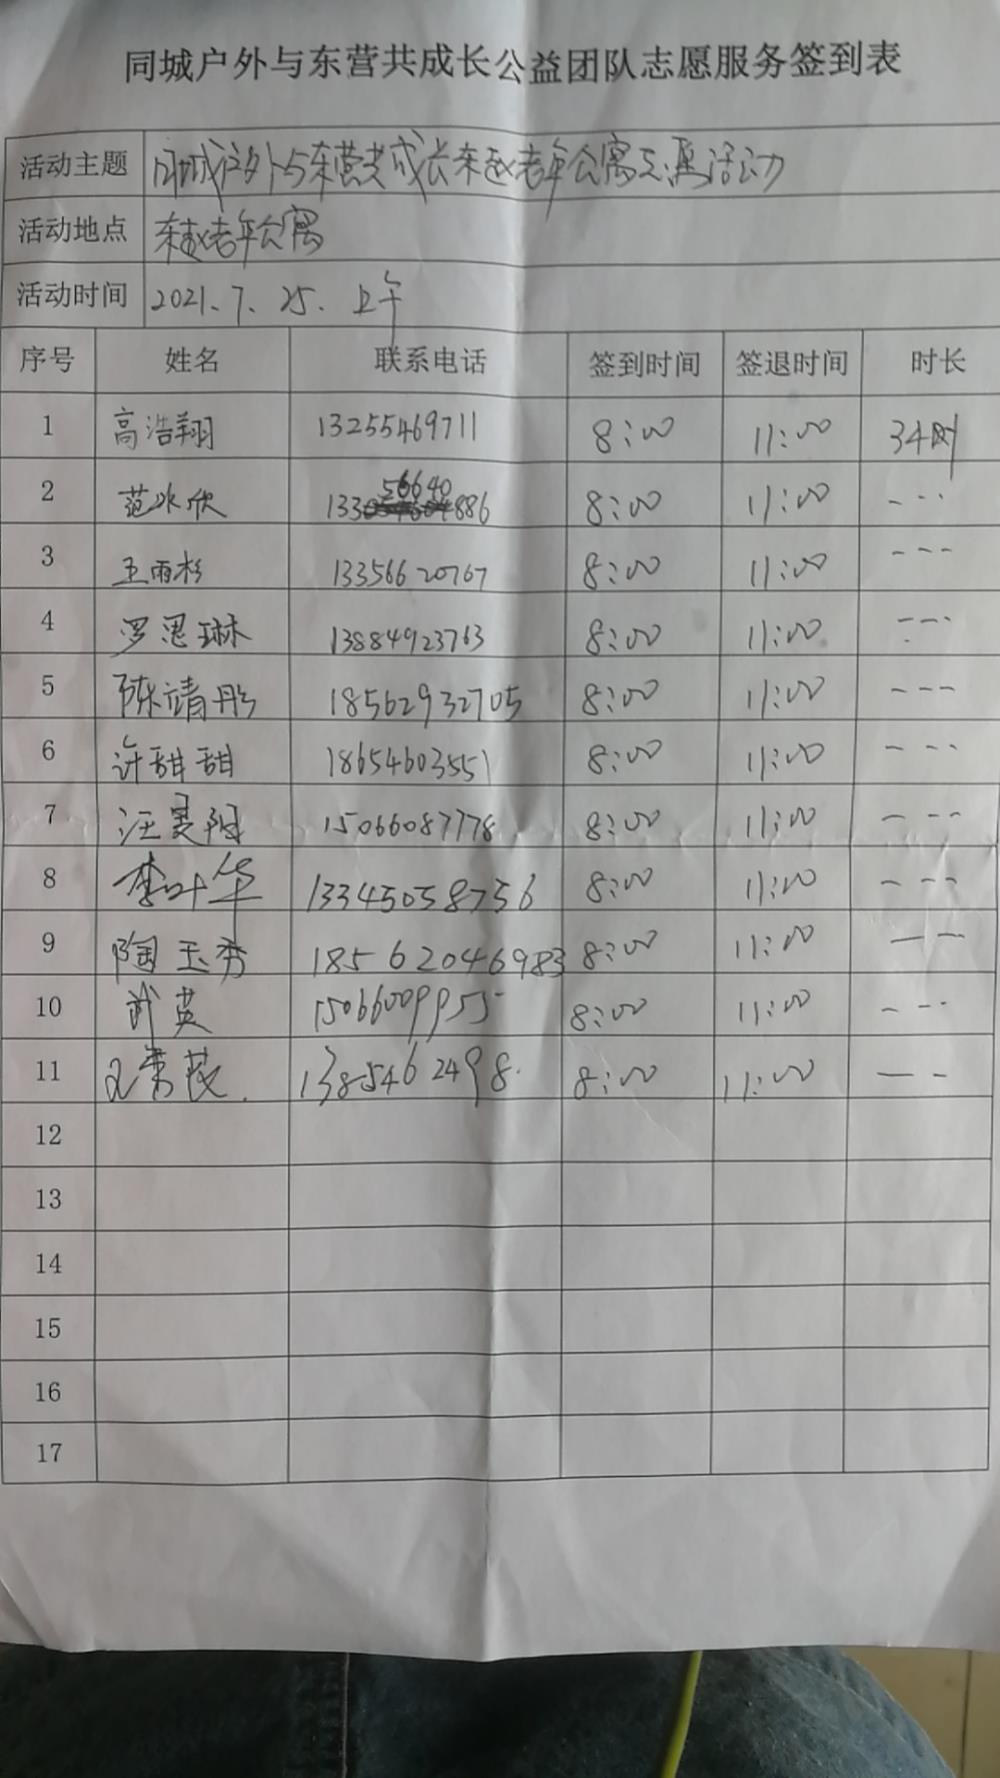 同城户外与东营共成长公益团队志愿服务签到表
活动主题 同城户外与东营共成长东赵老年公寓志愿活动
活动地点 东赵老年公寓
活动时间 2021.7.25.上午
序号 姓名 联系电话 签到时间 签退时间 时长
1 高浩翔 13255469711 8:00 11:00 3小时
2 范冰欣 13356640886 8:00 11:00 ---
3 王雨杉 13356620767 8:00 11:00 ---
4 罗思琳 13884923763 8:00 11:00 ---
5 陈靖彤 18562932705 8:00 11:00 ---
6 许甜甜 18654603551 8:00 11:00 ---
7 汪昊阳 15066087778 8:00 11:00 ---
8 李叶华 13345058756 8:00 11:00 ---
9 陶玉秀 18562046983 8:00 11:00 --
10 武英 15066009955 8:00 11:00 ---
11 1385462498. 8:00 11:00 ---
12
13
14
15
16
17